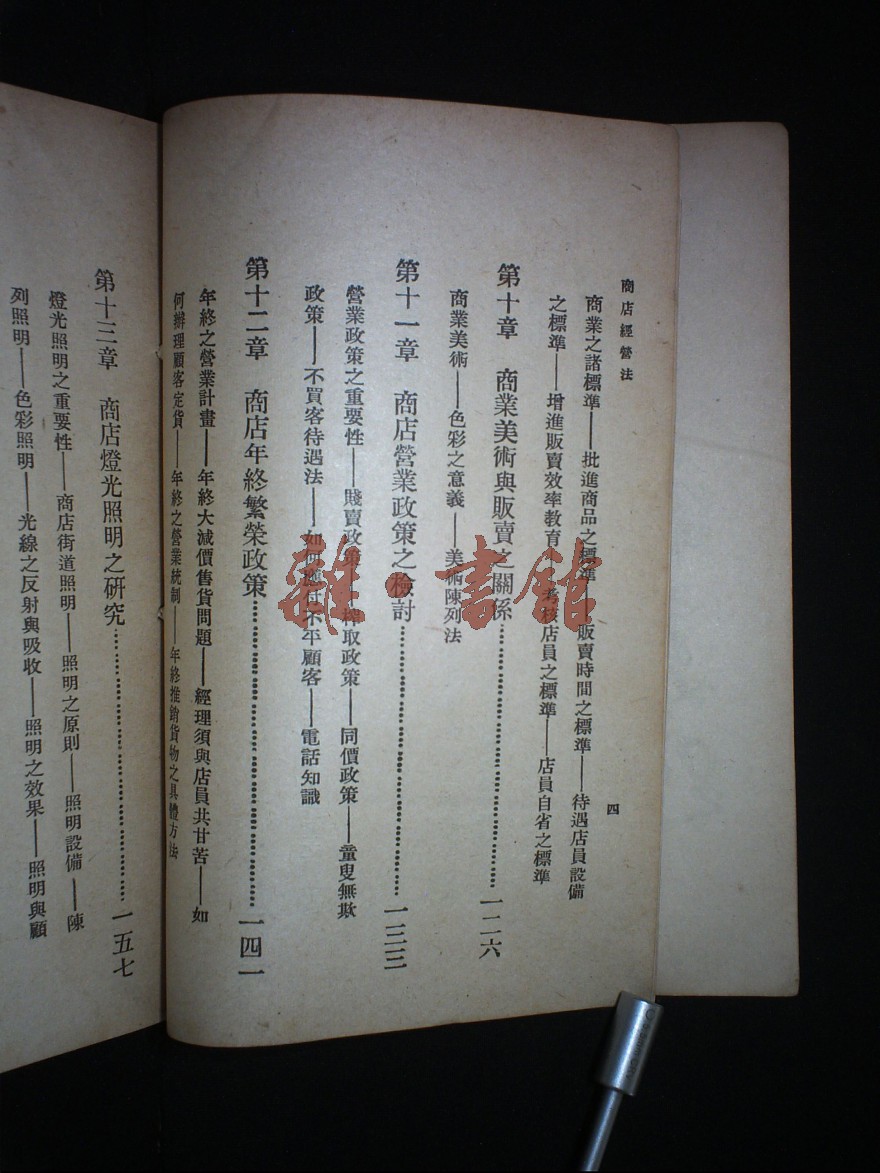 商店經營法
四
商業之諸標準——批進商品之標準——販賣時間之標準——待遇店員設備
之標準——增進販賣效率教育——考核店員之標準——店員自省之標準
第十章 商業美術與販賣之關係……一二六
商業美術——色彩之意義——美術陳列法
第十一章 商店營業政策之檢討……一三三
營業政策之重要性——賤賣政策——榨取政策——同價政策——童叟無欺
政策——不買客待遇法——如何應付不平顧客——電話知識
第十二章 商店年終繁榮政策……一四一
年終之營業計畫——年終大減價售貨問題——經理須與店員共甘苦——如
何辦理顧客定貨——年終之營業統制——年終推銷貨物之具體方法
第十三章 商店燈光照明之研究……一五七
燈光照明之重要性——商店街道照明——照明之原則——照明設備——陳
列照明——色彩照明——光線之反射與吸收——照明之效果——照明與顧
雜·書館